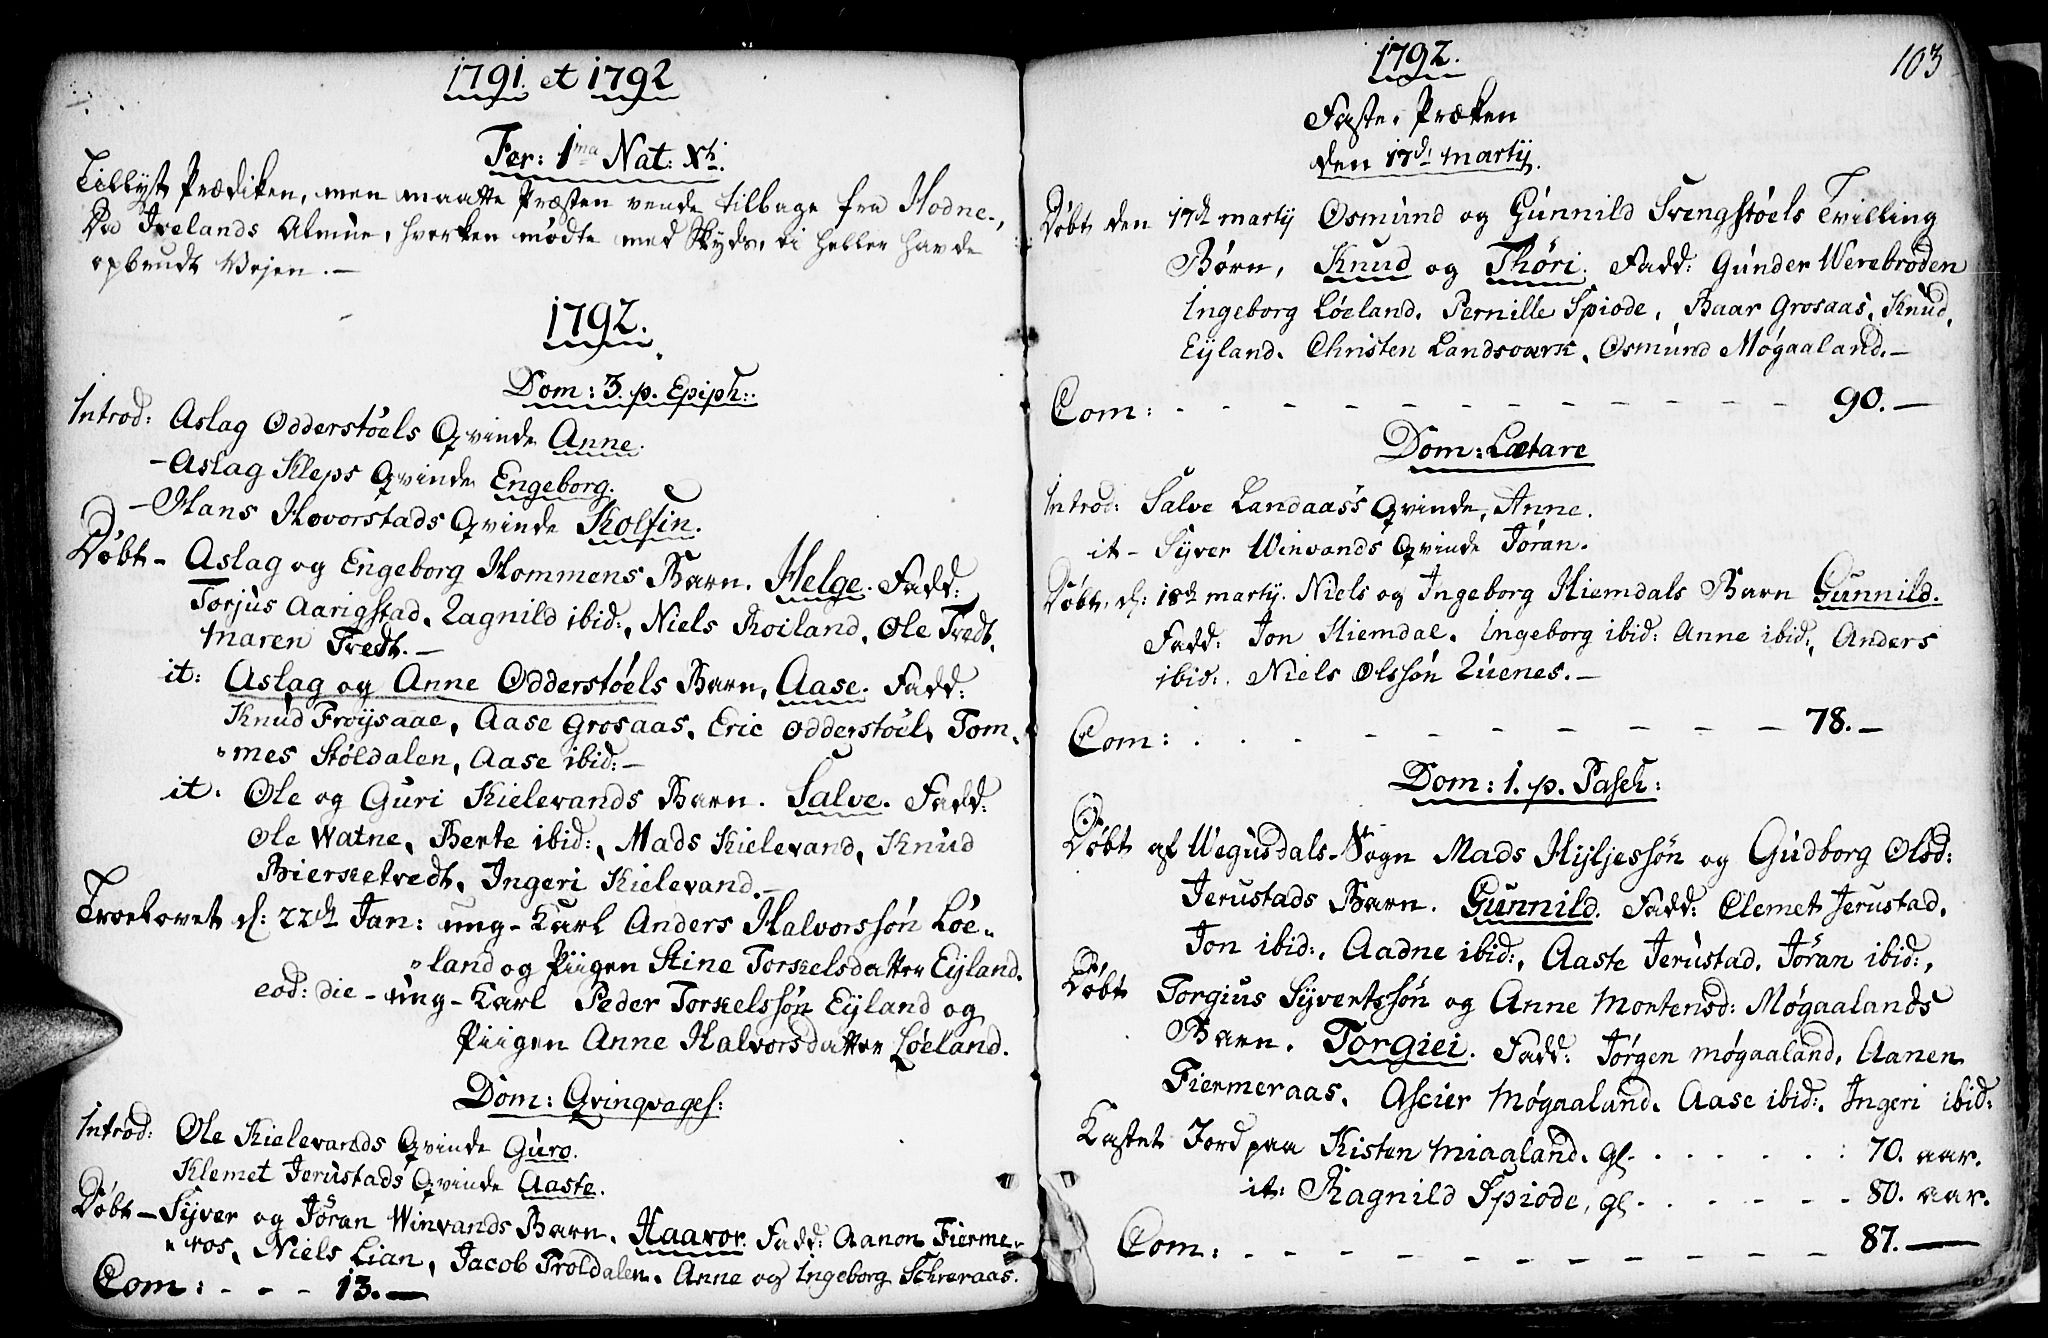 1791. et 1792
Fer: 1ma Nat: Xti.
Tillyst Prædiken, men maatte Præsten vende tilbage fra Hodne,
Da Ivelands Almue, hverken mødte med Skyds, ei heller havde
opbrudt Vejen.—
1792.
Dom: 3. p. Epiph:.
Introd: Aslag Odderstøels Qvinde Anne.
– Aslag Kleps Qvinde Engeborg.
– Hans Hovorstads Qvinde Kolfin.
Døbt – Aslag og Engeborg Hommens Barn. Helge. Fadd:
Torjus Aarigstad, Ragnild ibid:, Niels Roiland, Ole Tredt,
Maren Tredt.—
it: Aslag og Anne Odderstøels Barn, Aase. Fadd:
Knud Frøysaae, Aase Grosaas, Eric Odderstøel, Tom-
mes Støldalen, Aase ibid:—
it. Ole og Guri Kielevands Barn. Salve. Fadd:
Ole Watne, Berte ibid:, Mads Kielevand, Knud
Bierketvedt, Ingeri Kielevand.—
Troelovet d: 22de Jan: ung-Karl Anders Halvorssøn Løe-
land og Piigen Stine Torkelsdatter Eyland.
eod: die – ung-Karl Peder Torkelssøn Eyland og
Piigen Anne Halvorsdatter Løeland.
Dom: Qvinqvages:
Introd: Ole Kielevands Qvinde Guro.
Klemet Jerustads Qvinde Aaste.
Døbt – Syver og Jøran Winvands Barn. Haavor. Fadd: Aanon Fierme-
ros, Niels Lian, Jacob Troldalen. Anne og Ingeborg Schreraas.
Com: - - - 13.—
1792.
103
Faste-Præken
den 17de Martij.
Døbt den 17de Martij Osmund og Gunnild Svengstøels Tvilling
Børn, Knud og Thøri. Fadd: Gunder Werebroden
Ingeborg Løeland. Pernille Spiode, Baar Grosaas, Knud
Eyland. Christen Landsværk, Osmund Møgaaland.—
Com: - - - - - - - - - - - - - 90.—
Dom: Lætare
Introd: Salve Landaas's Qvinde, Anne.
it – Syver Winvands Qvinde Jøran.
Døbt, d: 18de Martij. Niels og Ingeborg Hiemdals Barn Gunnild.
Fadd: Jon Hiemdal. Ingeborg ibid: Anne ibid:, Anders
ibid:. Niels Olssøn Luenes.—
Com: . . . - - - - - - - - 78.—
Dom: 1. p. Pasch:
Døbt af Wegusdals-Sogn Mads Hyljessøn og Gudborg Olsd:
Jerustads Barn. Gunnild. Fadd: Clemet Jerustad,
Jon ibid:, Aadne ibid:, Aaste Jerustad. Jøran ibid:,
Døbt Torgius Syvertssøn og Anne Mortensd: Møgaalands
Barn. Torgiei. Fadd: Jørgen Møgaaland, Aanen
Fiermeraas, Ascier Møgaaland. Aase ibid:. Ingeri ibid:
Kastet Jord paa Kisten Miaaland. gl. . . . . . . : 70. aar.
it: Ragnild Spiode, gl . . . . . . . 80. aar.
Com: - - - - - - - - - - - - 87.—